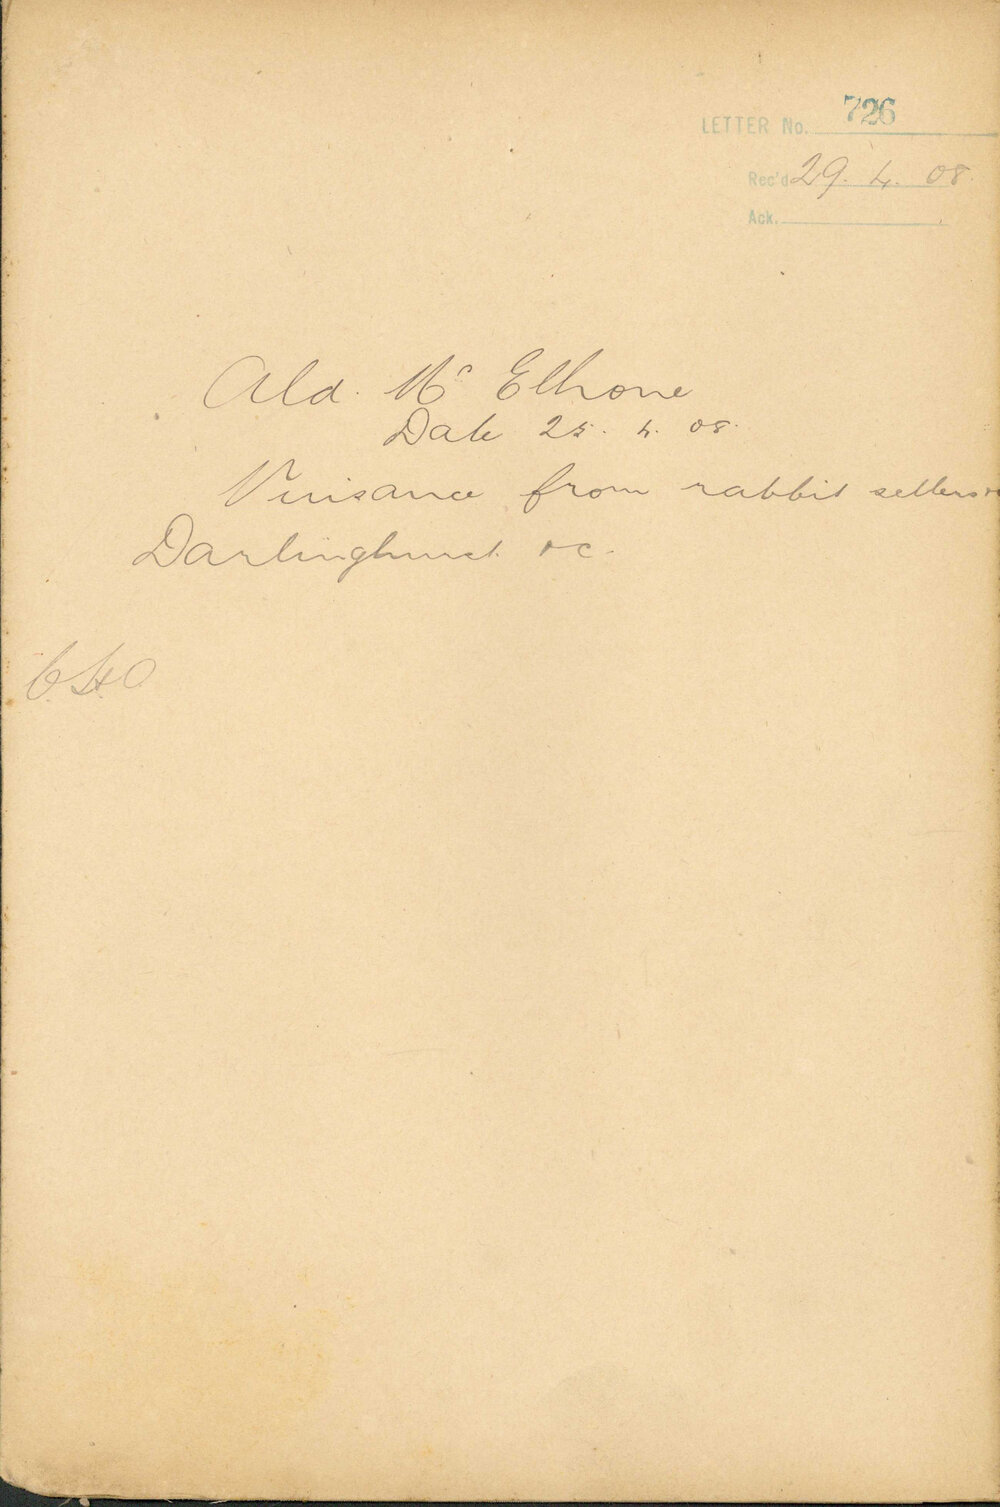 LETTER No. 726
Rec'd 29. 4. 08.
Ack.
Ald. Mc Elhone
Date 25. 4. 08.
Nuisance from rabbit sellers
Darlinghurst &c.